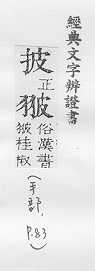 經典文字辨證書
披正
翍俗漢書
翍桂椒
(手部, p.83)